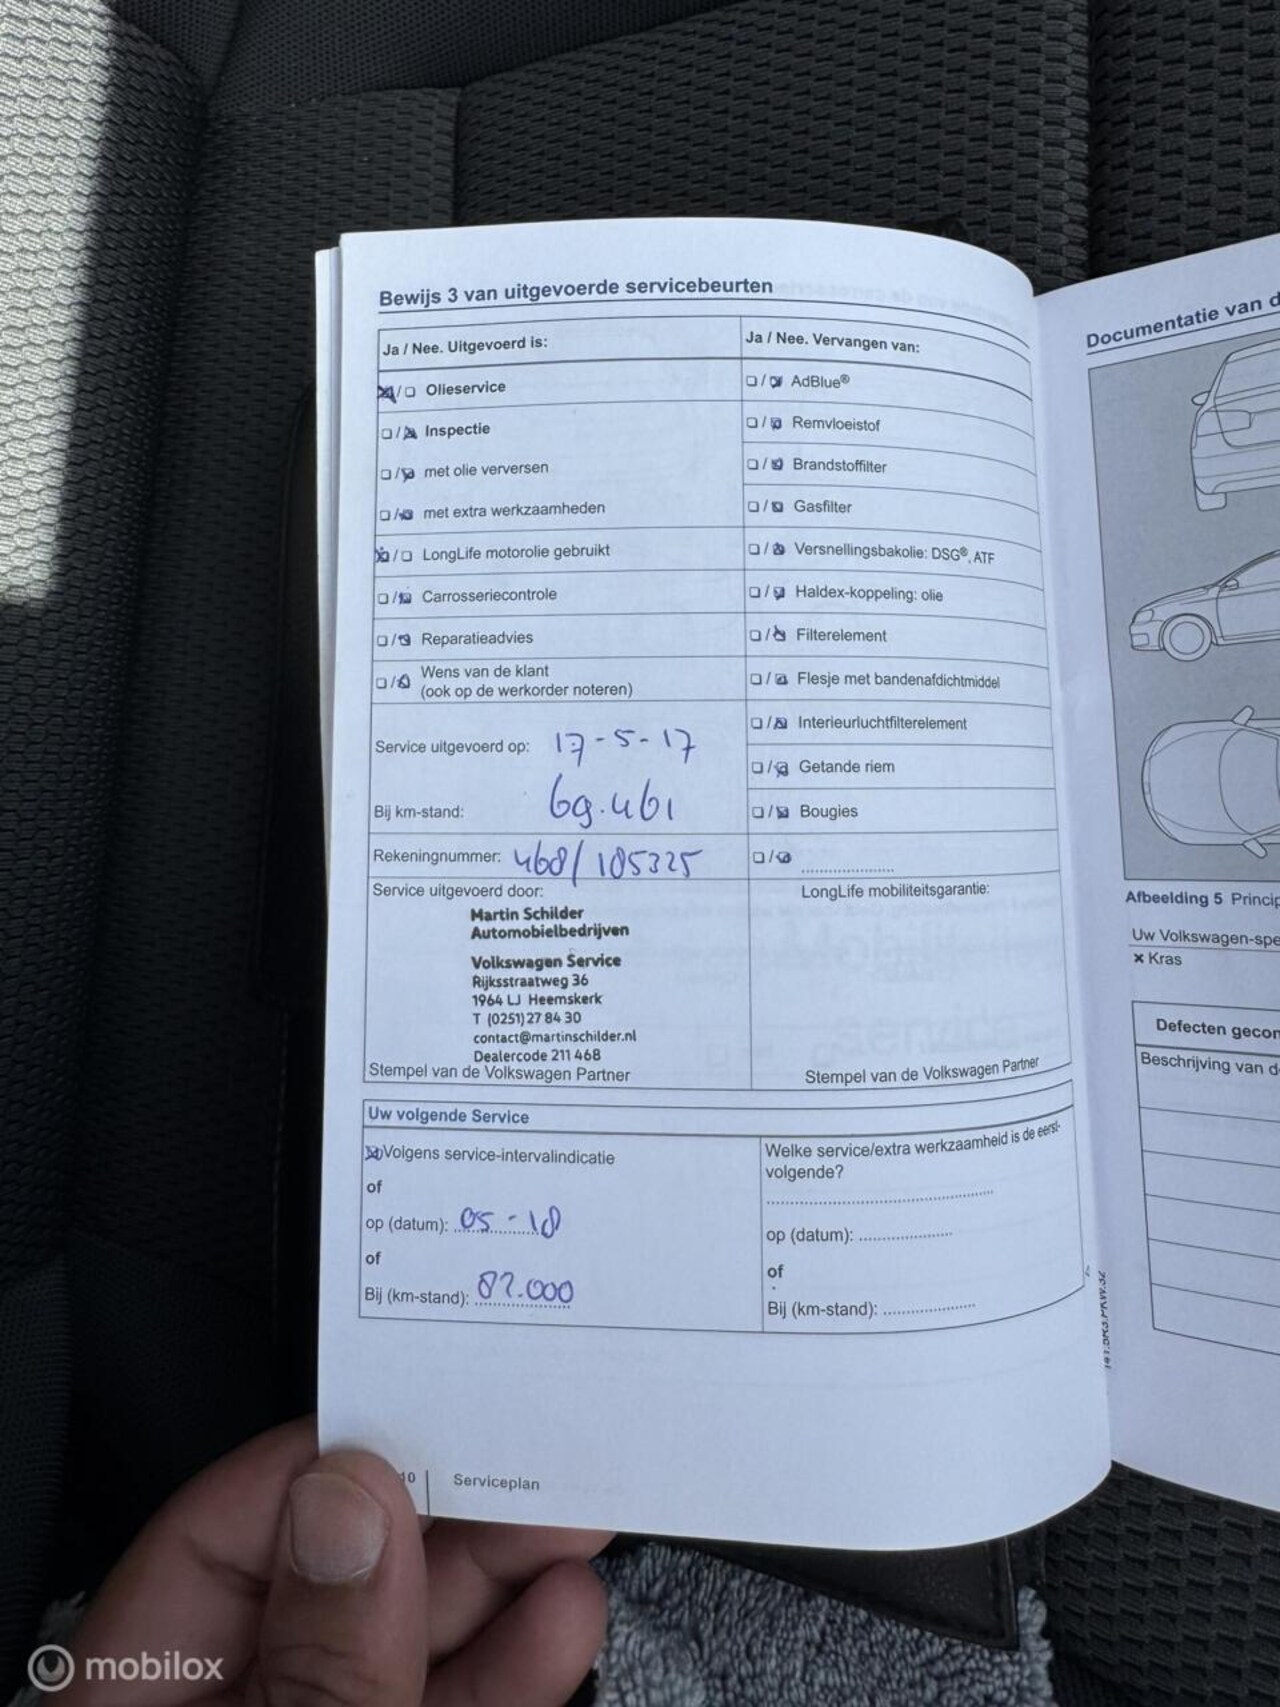 Bewijs 3 van uitgevoerde servicebeurten
Ja / Nee. Uitgevoerd is:
☒/☐ Olieservice
☐/☒ Inspectie
☐/☒ met olie verversen
☐/☒ met extra werkzaamheden
☒/☐ LongLife motorolie gebruikt
☐/☒ Carrosseriecontrole
☐/☒ Reparatieadvies
☐/☒ Wens van de klant
(ook op de werkorder noteren)
Service uitgevoerd op: 17-5-17
Bij km-stand: 69.461
Rekeningnummer: 468/185325
Service uitgevoerd door:
Martin Schilder
Automobielbedrijven
Volkswagen Service
Rijksstraatweg 36
1964 LJ Heemskerk
T (0251) 27 84 30
contact@martinschilder.nl
Dealercode 211 468
Stempel van de Volkswagen Partner
Ja / Nee. Vervangen van:
☐/☒ AdBlue®
☐/☒ Remvloeistof
☐/☒ Brandstoffilter
☐/☒ Gasfilter
☐/☒ Versnellingsbakolie: DSG®, ATF
☐/☒ Haldex-koppeling: olie
☐/☒ Filterelement
☐/☒ Flesje met bandenafdichtmiddel
☐/☒ Interieurluchtfilterelement
☐/☒ Getande riem
☐/☒ Bougies
☐/☒ ....................
LongLife mobiliteitsgarantie:
Stempel van de Volkswagen Partner
Uw volgende Service
☒ Volgens service-intervalindicatie
of
op (datum): 05-18
of
Bij (km-stand): 87.000
Welke service/extra werkzaamheid is de eerst-
volgende?
op (datum): ....................
of
Bij (km-stand): ....................
10 | Serviceplan
Documentatie van d
Afbeelding 5 Princip
Uw Volkswagen-spe
× Kras
Defecten gecon
Beschrijving van d
mobilox